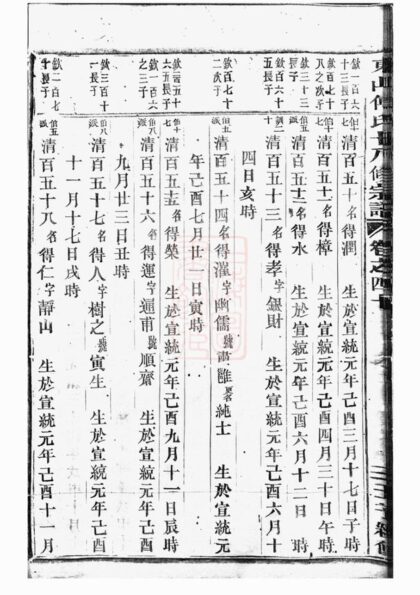 宗譜 卷之四十
欽一百六十三長子
清百五十名得潤 生於宣統元年己酉三月十七日子時
清百五十一名得樟 生於宣統元年己酉四月三十日午時
欽三十三長子
清百五十二名得水 生於宣統元年己酉六月十二日 時
欽六十五長子
清百五十三名得孝字銀財 生於宣統元年己酉六月十
四日亥時
欽百七十二次子
清百五十四名得漢字幽儒號 純士 生於宣統元
年己酉七月廿一日寅時
清百五十五名得榮 生於宣統元年己酉九月十一日辰時
欽一百六十之三子
清百五十六名得運字通甫號順齋 生於宣統元年己酉
九月廿三日丑時
欽三百十一長子
清百五十七名得人字樹之號寅生 生於宣統元年己酉
十一月十七日戌時
欽二百七十長子
清百五十八名得仁字靜山 生於宣統元年己酉十一月